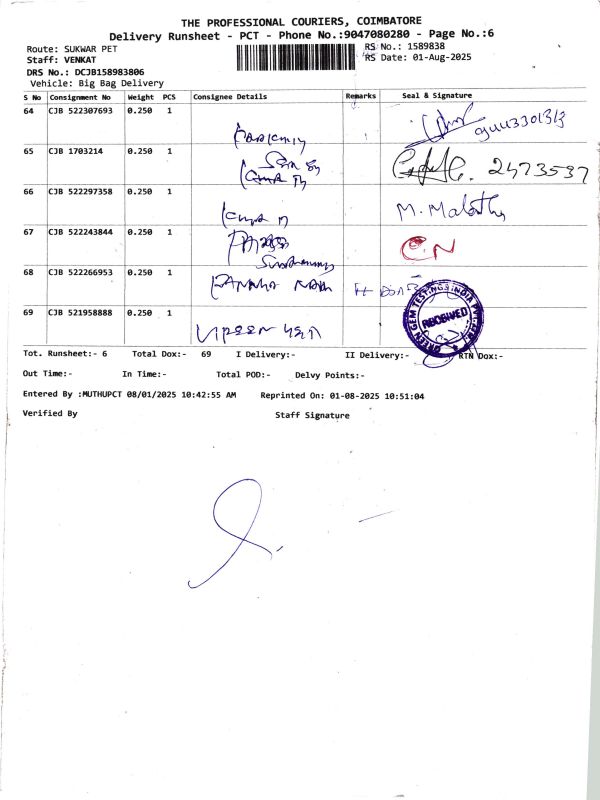 THE PROFESSIONAL COURIERS, COIMBATORE
Delivery Runsheet - PCT - Phone No.:9047080280 - Page No.:6
Route: SUKWAR PET
RS No.: 1589838
Staff: VENKAT
RS Date: 01-Aug-2025
DRS No.: DCJB158983806
Vehicle: Big Bag Delivery
S No Consignment No Weight PCS Consignee Details Remarks Seal & Signature
64 CJB 522307693 0.250 1
65 CJB 1703214 0.250 1
2473537
66 CJB 522297358 0.250 1
M. Malathy
67 CJB 522243844 0.250 1
C.N
68 CJB 522266953 0.250 1
69 CJB 521958888 0.250 1
GREEN GEM TESTINGS INDIA PVT. LTD.
RECEIVED
Tot. Runsheet:- 6 Total Dox:- 69 I Delivery:- II Delivery:- RTN Dox:-
Out Time:- In Time:- Total POD:- Delvy Points:-
Entered By :MUTHUPCT 08/01/2025 10:42:55 AM Reprinted On: 01-08-2025 10:51:04
Verified By Staff Signature